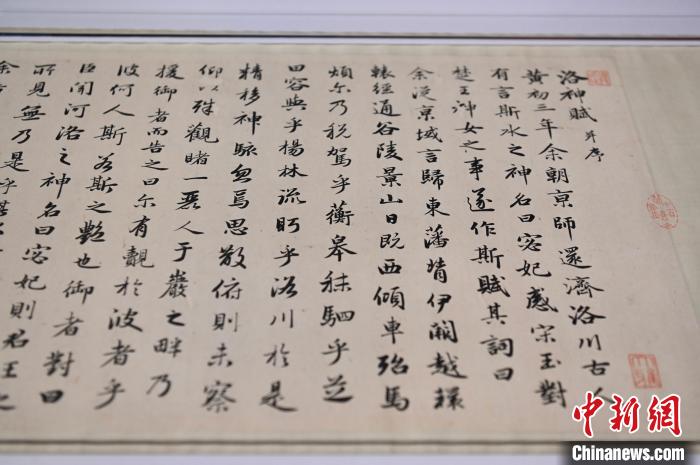 洛神賦 并序
黃初三年余朝京師還濟洛川古人
有言斯水之神名曰宓妃感宋玉對
楚王神女之事遂作斯賦其詞曰
余從京城言歸東藩背伊闕越轘
轅經通谷陵景山日既西傾車殆馬
煩尔乃稅駕乎蘅皋秣駟乎芝
田容與乎楊林流眄乎洛川於是
精移神駭忽焉思散俯則未察
仰以殊觀睹一麗人于巖之畔乃
援御者而告之曰尔有覿於彼者乎
彼何人斯若斯之艷也御者對曰
臣聞河洛之神名曰宓妃則君王之
所見無乃是乎其
余
中新网
Chinanews.com